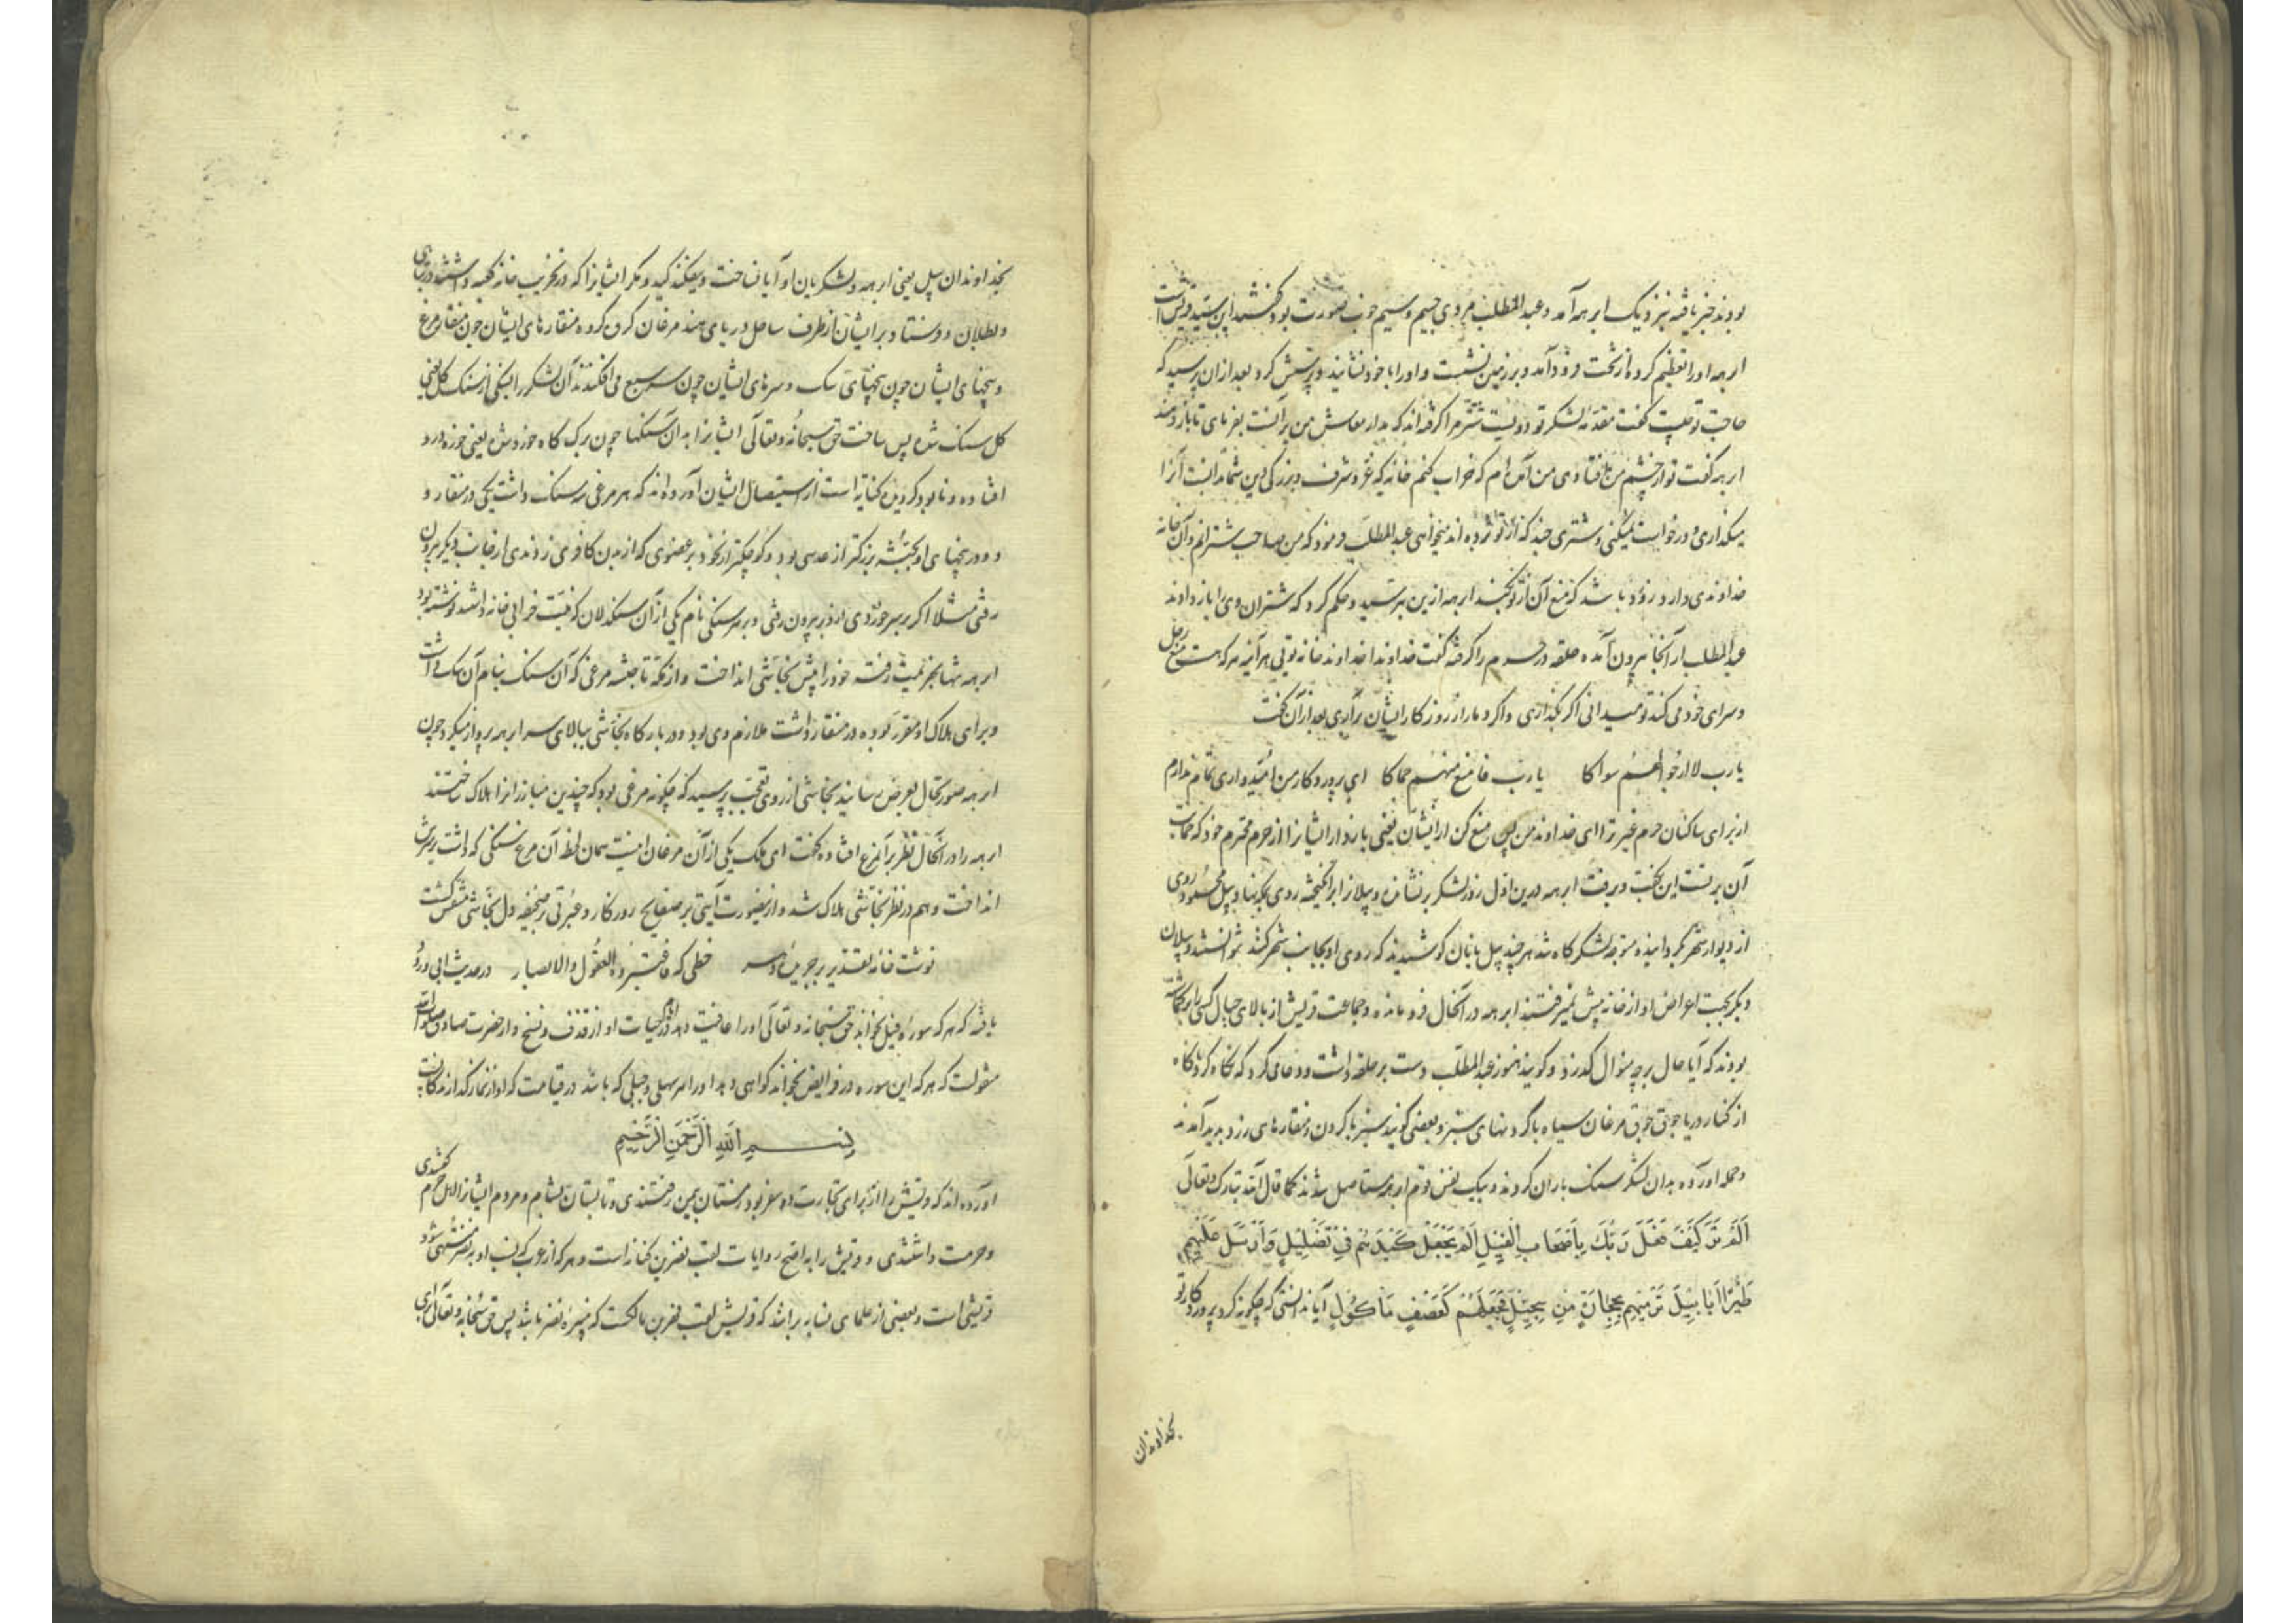 بودند خبر یافته نزدیک ابرهه آمد و عبدالمطلب مردی جسیم وسیم خوب صورت بود گفتند این سید قریش است
ابرهه او را تعظیم کرد و از تخت فرود آمد و بر زمین نشست و او را با خود نشانید و پرسش کرد بعد از آن پرسید که
حاجت تو چیست گفت مقدمه لشکر تو دویست شتر مرا گرفته‌اند که مدار معاش من بر آنست بفرمای تا باز دهند
ابرهه گفت تو از چشم من افتادی من آمده‌ام که خراب کنم خانه که عز و شرف و بزرگی دین شما بدانست آنرا
میگذاری و درخواست نمیکنی و شتری چند که از تو برده‌اند میخواهی عبدالمطلب فرمود که من صاحب شترانم و آن خانه
خداوندی دارد زود باشد که منع آن از تو بکند ابرهه ازین بترسید و حکم کرد که شتران وی را باز دادند
عبدالمطلب از آنجا بیرون آمده حلقه در حرم را گرفته گفت خداوندا خداوند خانه توئی هر آینه هر که هست منع رحل
و سرای خود می‌کند تو میدانی اگر بگذاری و اگر دمار از روزگار ایشان برآری بعد از آن گفت
یا رب لا ارجو لهم سواکا یا رب فامنع منهم حماکا ای پروردگار من امیدواری تمام ندارم
از برای ساکنان حرم غیر ترا ای خداوند من پس منع کن از ایشان یعنی باز دار ایشانرا از حرم محترم خود که حمایت
آن بر تست این بگفت و برفت ابرهه درین اول روز لشکر برنشانده و پیلانرا برانگیخته روی بمکه نهاد و پیل محمود روی
از دیوار شهر بگردانیده متوجه لشکرگاه شد هر چند پیل بانان کوشیدند که روی او بجانب شهر کنند نتوانستند و پیلان
دیگر بجهت اعراض او از خانه پیش نمیرفتند ابرهه در آنحال فرو مانده و جماعت قریش از بالای جبال
بودند که آیا حال بر چه منوال گذرد و گویند هنوز عبدالمطلب دست بر حلقه داشت و دعا می‌کرد که نگاه کرد ناگاه
از کنار دریا جوق جوق مرغان سیاه با گردنهای سبز و بعضی گویند سبز با گردن و منقارهای زرد پدید آمدند
و حمله آورده بدان لشکر سنگ باران کردند و بیک نفس قوم ابرهه مستاصل شدند کما قال الله تبارک و تعالی
اَلَمْ تَرَ كَيْفَ فَعَلَ رَبُّكَ بِاَصْحَابِ الْفِيْلِ اَلَمْ يَجْعَلْ كَيْدَهُمْ فِيْ تَضْلِيْلٍ وَاَرْسَلَ عَلَيْهِمْ
طَيْرًا اَبَابِيْلَ تَرْمِيْهِمْ بِحِجَارَةٍ مِنْ سِجِّيْلٍ فَجَعَلَهُمْ كَعَصْفٍ مَأْكُوْلٍ آیا ندانستی که چگونه کرد پروردگار تو
بخداوندان
بخداوندان پیل یعنی ابرهه و لشکریان او آیا نساخت و نیفکند کید و مکر ایشانرا که در تخریب خانه کعبه داشتند در تباهی
و بطلان و فرستاد بر ایشان از طرف ساحل دریای هند مرغان گروه گروه منقارهای ایشان چون منقار مرغ
و پنجهای ایشان چون پنجهای سگ و سرهای ایشان چون سر سبع می‌افکندند آن لشکر را بسنگی از سنگ گل یعنی
گل سنگ شده پس ساخت حق سبحانه و تعالی ایشانرا بدان سنگها چون برگ کاه خورده شده یعنی خوره در
افتاده و نابود گردیده کنایه است از استیصال ایشان آورده‌اند که هر مرغی سه سنگ داشت یکی در منقار و
دو در پنجهای او بجثه بزرگتر از عدسی بود و کوچکتر از نخود بر عضوی که از بدن کافری زدندی از جانب دیگر بیرون
رفتی مثلا اگر بر سر خوردی از دبر بیرون رفتی و بر هر سنگی نام یکی از آن سنگدلان که نیت خرابی خانه داشتند نوشته بود
ابرهه تنها بهزیمت رفته خود را پیش نجاشی انداخت و از مکه تا حبشه مرغی که آن سنگ بنام آن سگ داشت
و برای هلاک او مقرر بوده در منقار داشت ملازم وی بود و در بارگاه نجاشی ببالای سر ابرهه پرواز میکرد چون
ابرهه صورتحال بعرض رسانید نجاشی از روی تعجب پرسید که چگونه مرغی بود که چندین مبارزانرا هلاک ساختند
ابرهه را در آنحال نظر بر آن مرغ افتاده گفت ای ملک یکی از آن مرغان اینست همان لحظه آن مرغ سنگی که داشت بر سرش
انداخت و هم در نظر نجاشی هلاک شد و ازینصورت آیتی بر صفایح روزگار و عبرتی بر صحیفه دل نجاشی منقش گشت
نوشت خامه تقدیر بر جریده دهر خطی که فاعتبروا یا اولی الابصار در حدیث ابی ورد
یافته که هر که سوره فیل بخواند حق سبحانه و تعالی او را عافیت دهد در ایام حیات او از قذف و مسخ و از حضرت صادق صلوات الله
منقولست که هر که این سوره در فرایض بخواند گواهی دهد او را هر سهل و جبلی که باشد در قیامت که او از نمازگذارندگانست
بسم الله الرحمن الرحیم
آورده‌اند که قریش را از برای تجارت دو سفر بود زمستان بیمن رفتندی و تابستان بشام و مردم ایشانرا اهل حرم گفتندی
و حرمت داشتندی و قریش را به اصح روایات لقب نضر بن کنانه است و هر که از عرب که نسب او به نضر منتهی شود
قریشی است و بعضی از علمای نسابه برانند که قریش لقب فهر بن مالکست که نبیره نضر باشد پس حق سبحانه و تعالی برای